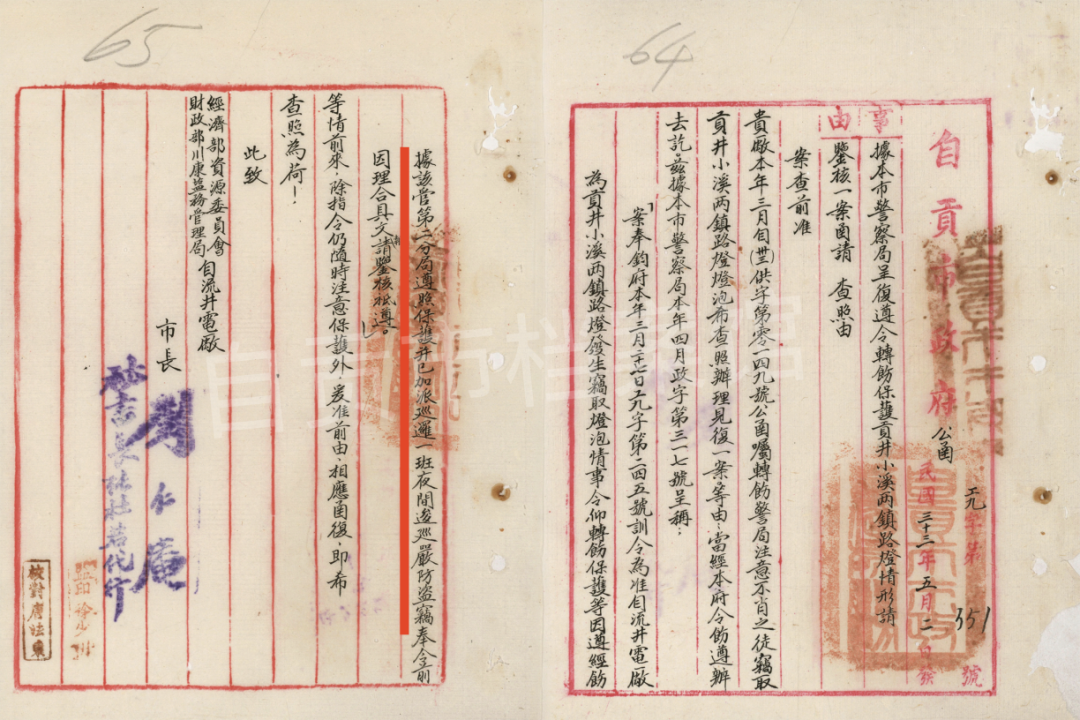 64
自貢市政府公函
工九字第351號
民國三十三年五月二日發
事由
據本市警察局呈復遵令轉飭保護貢井小溪兩鎮路燈情形請
鑒核一案函請 查照由
案查前准
貴廠本年三月旬(卅三)供字第零一四九號公函囑轉飭警局注意不肖之徒竊取
貢井小溪兩鎮路燈燈泡希查照辦理見復一案等由，當經本府令飭遵辦
去訖茲據本市警察局本年四月政字第三一七號呈稱，
「案奉鈞府本年三月廿七日工九字第二四五號訓令為准自流井電廠
為貢井小溪兩鎮路燈發生竊取燈泡情事令仰轉飭保護等因遵經飭
65
據該管第二分局遵照保護并已加派巡邏一班夜間逡巡嚴防盜竊奉令前
因理合具文請鑒核祗遵。」
等情前來，除指令仍隨時注意保護外，爰准前由，相應函復，即希
查照為荷！
此致
經濟部資源委員會
財政部川康鹽務管理局
自流井電廠
市長
劉仁庵
秘書長 杜若代行
校對
自贡市档案馆